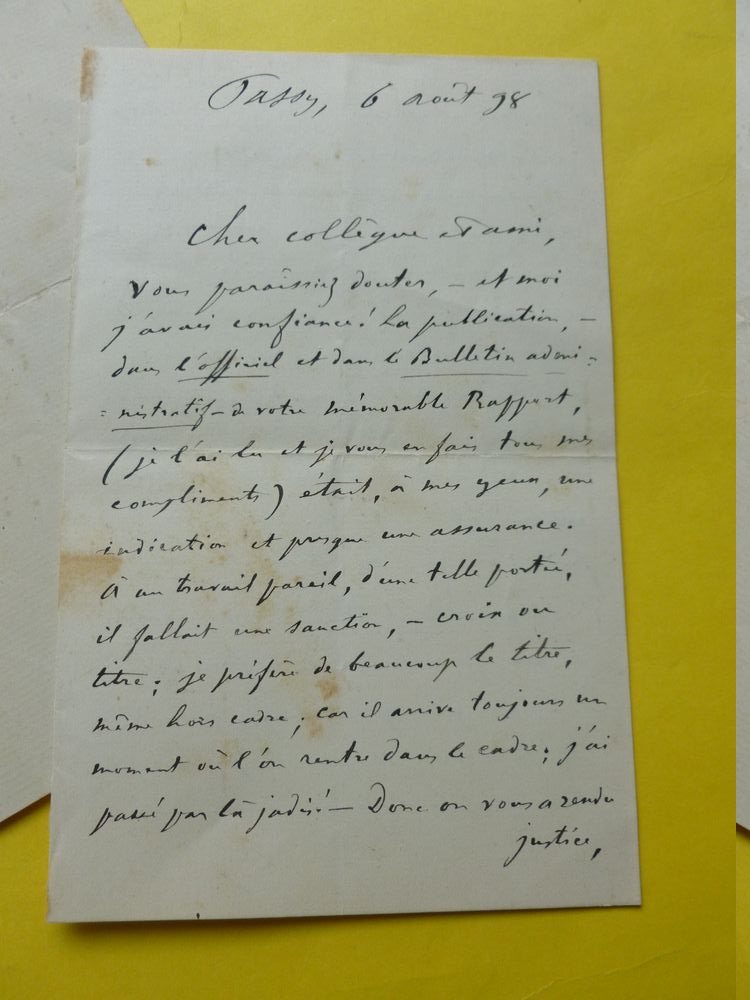 Passy, 6 août 98
Cher collègue et ami,
Vous paraissiez douter, – et moi
j'avais confiance! La publication, –
dans l'officiel et dans le Bulletin admi=
=nistratif – de votre mémorable Rapport,
(je l'ai lu et je vous en fais tous mes
compliments) était, à mes yeux, une
indication et presque une assurance.
À un travail pareil, d'une telle portée,
il fallait une sanction, – croix ou
titre; je préfère de beaucoup le titre,
même hors cadre; car il arrive toujours un
moment où l'on rentre dans le cadre; j'ai
passé par là jadis! – Donc on vous a rendu
justice,